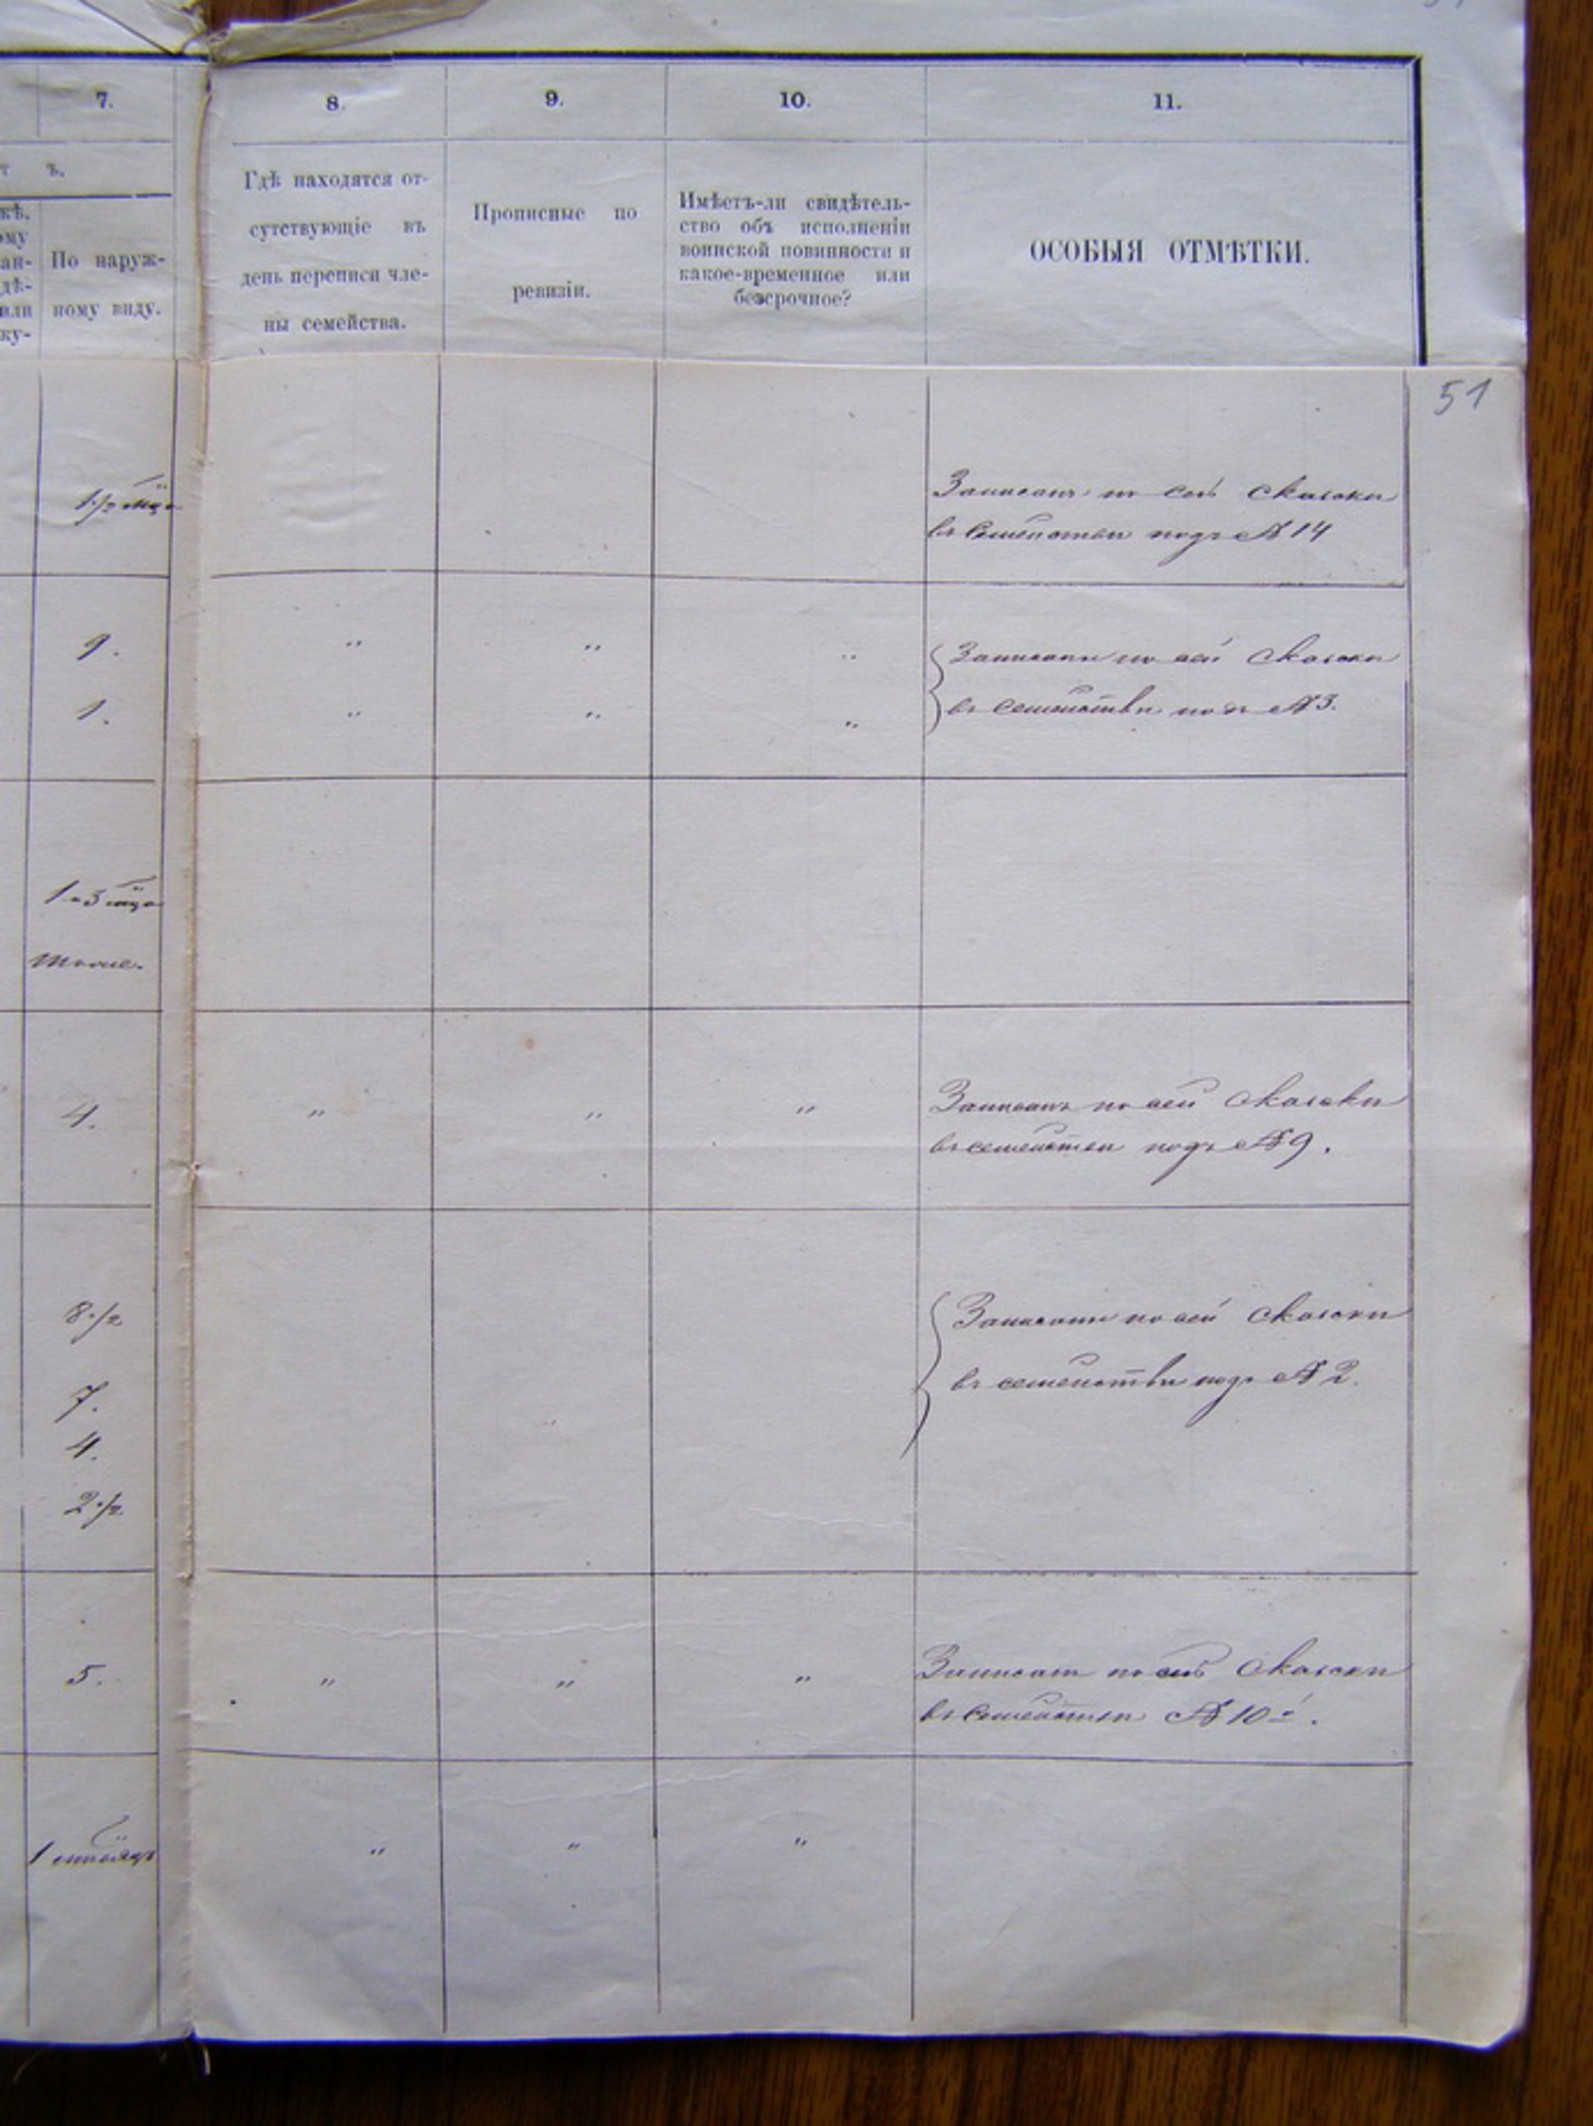 7.
8.
9.
10.
11.
ъ.
По наруж-
ному виду.
Гдѣ находятся от-
сутствующіе въ
день переписи чле-
ны семейства.
Прописные по
ревизіи.
Имѣетъ-ли свидѣтель-
ство объ исполненіи
воинской повинности и
какое-временное или
безсрочное?
ОСОБЫЯ ОТМѢТКИ.
51
Записанъ по сей сказки
въ семействѣ подъ №14
9. " " "
Записаны по сей сказки
1. " " "
въ семействѣ подъ №3.
4. " " "
Записанъ по сей сказки
въ семействѣ подъ №9.
8 1/2
Записаны по сей сказки
въ семействѣ подъ №2.
7.
4.
2 1/2
5. " " "
Записанъ по сей сказки
въ семействѣ №10й.
" " "